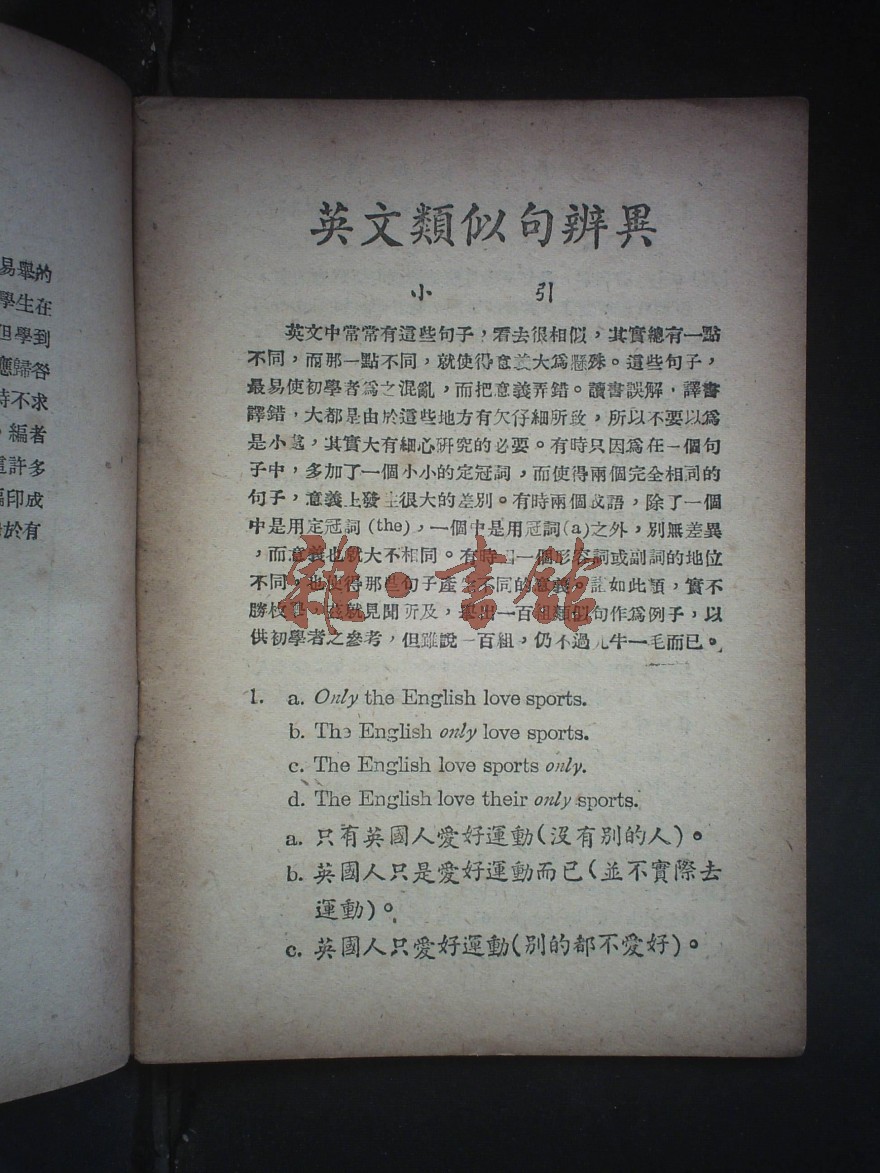 易舉的
學生在
但學到
應歸咎
時不求
編者
這許多
編印成
於有
英文類似句辨異
小引
英文中常常有這些句子，看去很相似，其實總有一點
不同，而那一點不同，就使得意義大爲懸殊。這些句子，
最易使初學者爲之混亂，而把意義弄錯。讀書誤解，譯書
譯錯，大都是由於這些地方有欠仔細所致，所以不要以爲
是小處，其實大有細心研究的必要。有時只因爲在一個句
子中，多加了一個小小的定冠詞，而使得兩個完全相同的
句子，意義上發生很大的差別。有時兩個成語，除了一個
中是用定冠詞(the)，一個中是用冠詞(a)之外，別無差異
，而意義也就大不相同。有時因一個形容詞或副詞的地位
不同，也使得那些句子產生不同的意義。諸如此類，實不
勝枚舉，茲就見聞所及，舉出一百組類似句作爲例子，以
供初學者之參考，但雖說一百組，仍不過九牛一毛而已。
雜·書館
1. a. Only the English love sports.
b. The English only love sports.
c. The English love sports only.
d. The English love their only sports.
a. 只有英國人愛好運動(沒有別的人)。
b. 英國人只是愛好運動而已(並不實際去
運動)。
c. 英國人只愛好運動(別的都不愛好)。